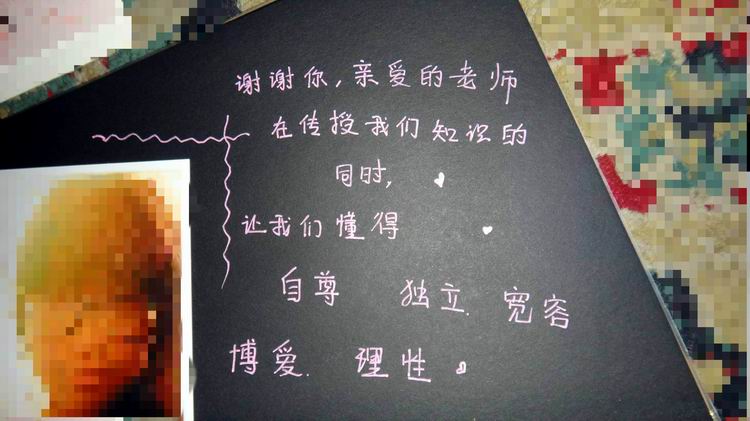 谢谢你，亲爱的老师
在传授我们知识的
同时，
让我们懂得
自尊 独立. 宽容
博爱. 理性。